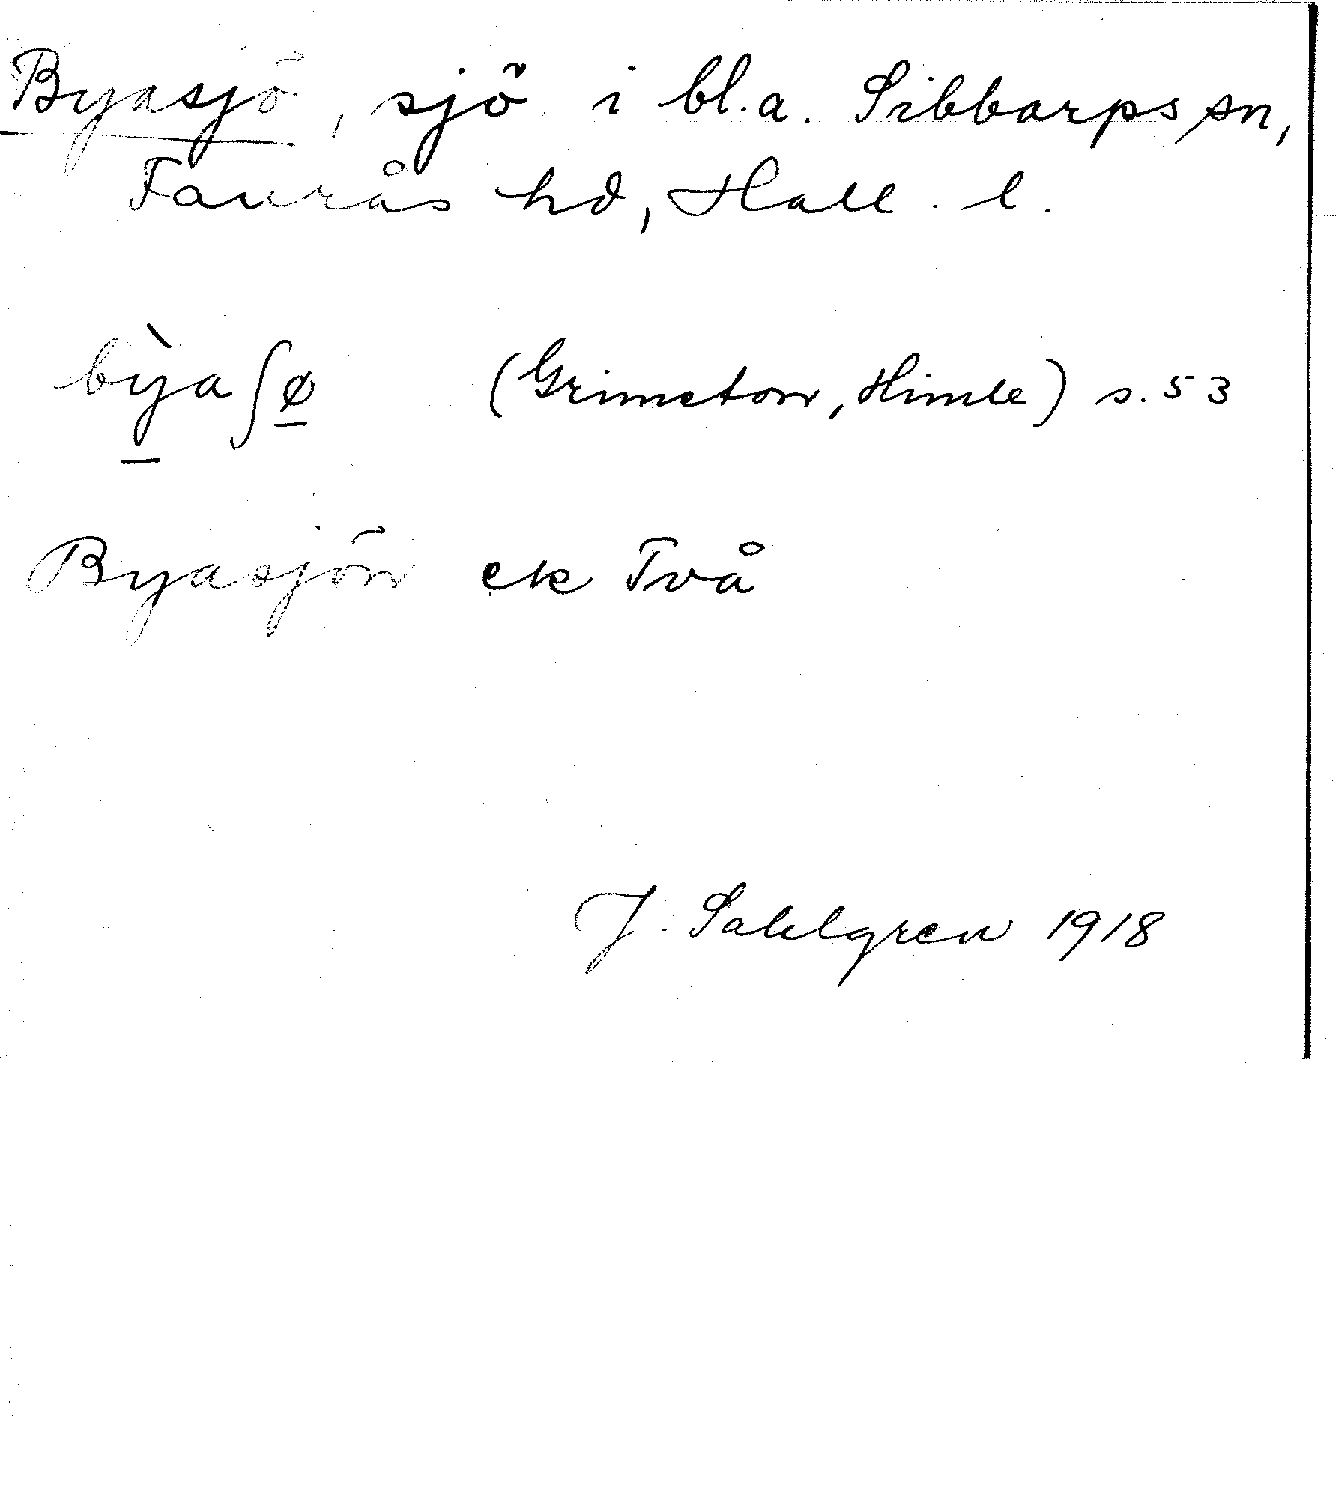 Byasjö, sjö i bl.a. Sibbarps sn,
Faurås hd, Hall. l.
bỳ̠aʃø̠ (Grimeton, Himle) s. 53
Byasjön ek Två
J. Sahlgren 1918